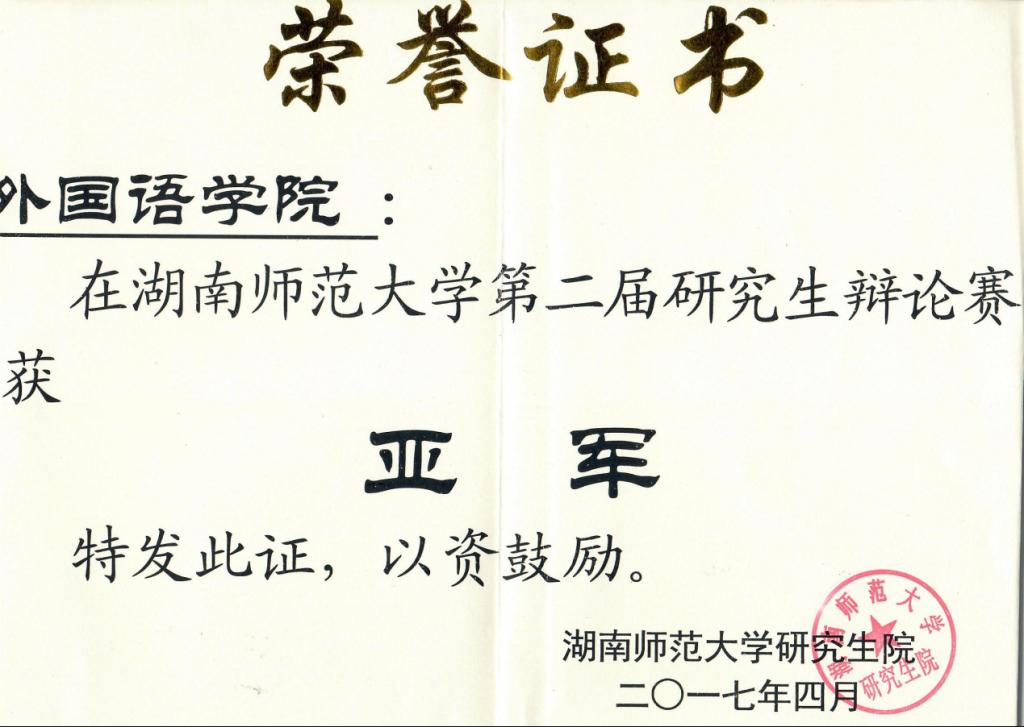 荣誉证书
外国语学院：
在湖南师范大学第二届研究生辩论赛
获
亚 军
特发此证，以资鼓励。
湖南师范大学研究生院
二〇一七年四月
湖南师范大学
研究生院